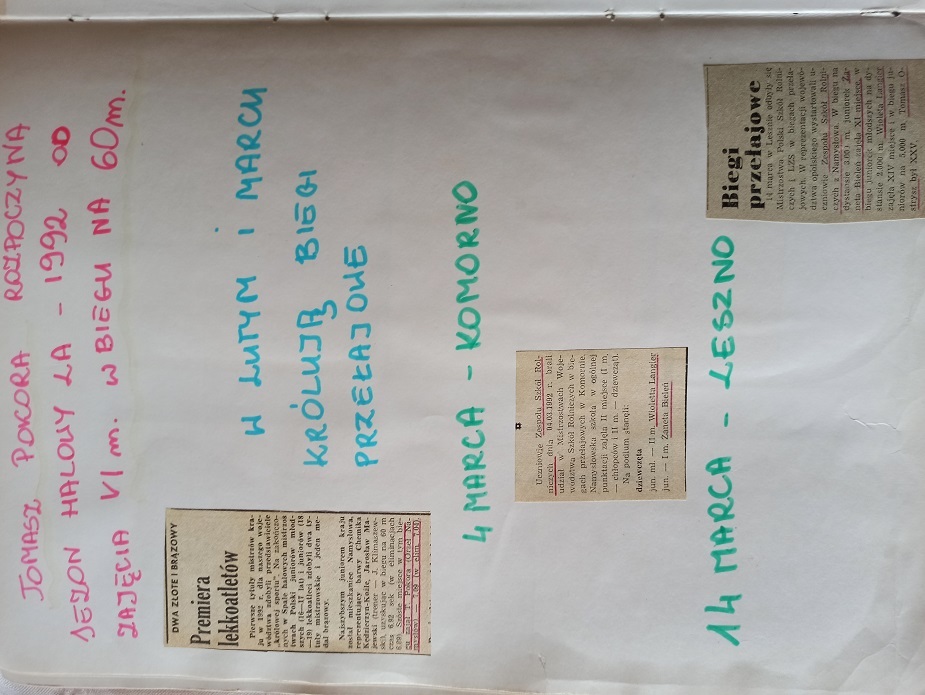 TOMASZ POKORA ROZPOCZYNA
SEZON HALOWY LA - 1992 OD
ZAJĘCIA VI m. W BIEGU NA 60 m.
DWA ZŁOTE I BRĄZOWY
Premiera
lekkoatletów
Pierwsze tytuły mistrzów kra-
ju w 1992 r. dla naszego woje-
wództwa zdobyli przedstawiciele
„królowej sportu". Na zakończo-
nych w Spale halowych mistrzos
twach Polski juniorów młod-
szych (16—17 lat) i juniorów (18
—19) lekkoatleci zdobyli dwa ty-
tuły mistrzowskie i jeden me-
dal brązowy.
Najszybszym juniorem kraju
został mieszkaniec Namysłowa,
reprezentujący barwy Chemika
Kędzierzyn-Koźle, Jarosław Ma-
jewski (trener — J. Klimaszew-
ski), uzyskując w biegu na 60 m
czas 6,92 sek (w eliminacjach
6,89). Szóste miejsce w tym bie-
gu zajął T. Pokora (Orzeł Na-
mysłów) — 7,09 (w elim. 7,03).
W LUTYM I MARCU
KRÓLUJĄ BIEGI
PRZEŁAJOWE
4 MARCA - KOMORNO
Uczniowie Zespołu Szkół Rol-
niczych dnia 04.03.1992 r. brali
udział w Mistrzostwach Woje-
wództwa Szkół Rolniczych w bie-
gach przełajowych w Komornie.
Namysłowska szkoła w ogólnej
punktacji zajęła II miejsce (I m.
— chłopców i II m. — dziewcząt).
Na podium stanęli:
dziewczęta
jun. mł. — II m. Wioletta Langier
jun. — I m. Żaneta Bieleń
14 MARCA - LESZNO
Biegi
przełajowe
14 marca w Lesznie odbyły się
Mistrzostwa Polski Szkół Rolni-
czych i LZS w biegach przeła-
jowych. W reprezentacji wojewó-
dztwa opolskiego wystartowali u-
czniowie Zespołu Szkół Rolni-
czych z Namysłowa. W biegu na
dystansie 3.000 m. juniorek Ża-
neta Bieleń zajęła XI miejsce, w
biegu juniorek młodszych na dy-
stansie 2.000 m. Wioleta Langier
zajęła XIV miejsce i w biegu ju-
niorów na 5.000 m. Tomasz O-
strysz był XXV.